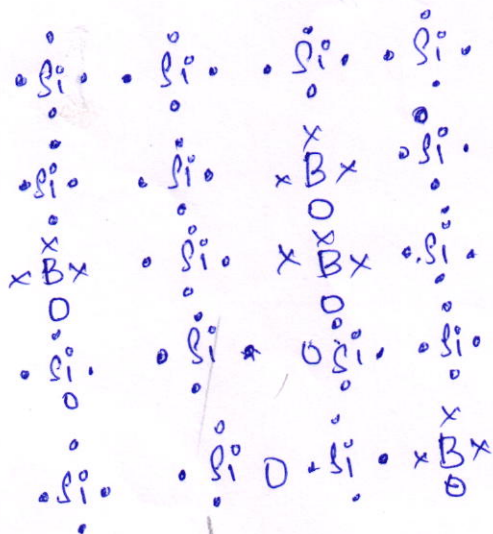 Si Si Si Si
Si Si B Si
B Si B Si
Si Si Si Si
Si Si Si B